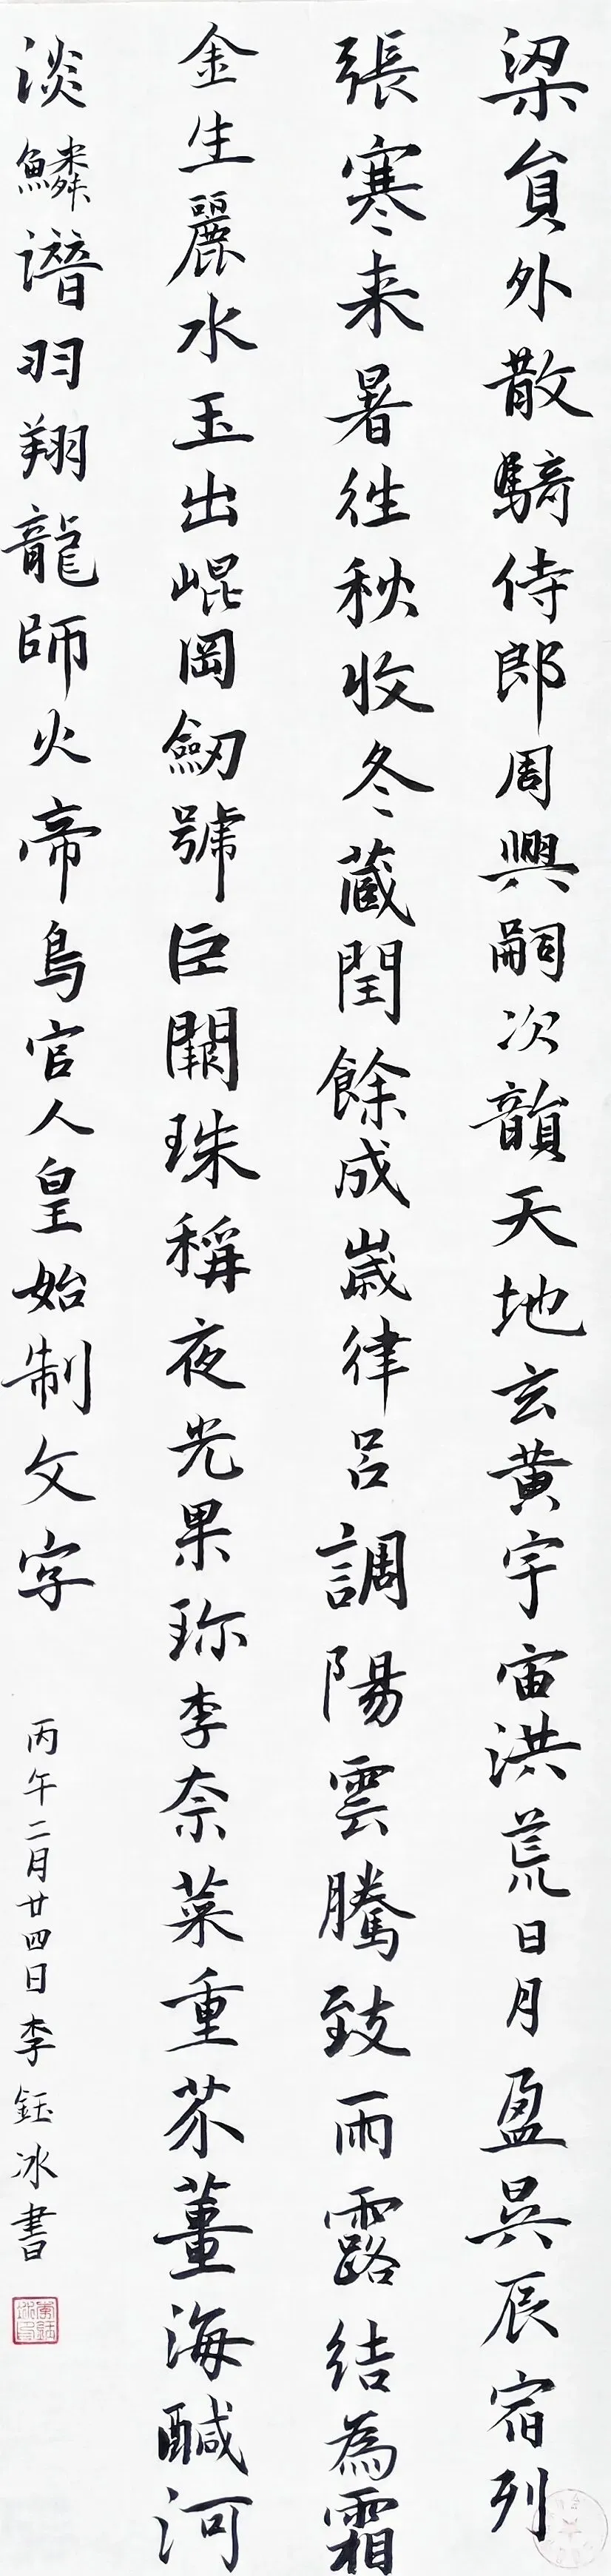 梁貟外散騎侍郎周興嗣次韻天地玄黄宇宙洪荒日月盈昃辰宿列
張寒来暑徃秋收冬蔵閏餘成歲律吕調陽雲騰致雨露結為霜
金生麗水玉出崐岡劒號巨闕珠稱夜光果珎李奈菜重芥薑海醎河
淡鱗潜羽翔龍師火帝鳥官人皇始制文字
丙午二月廿四日李鈺冰書